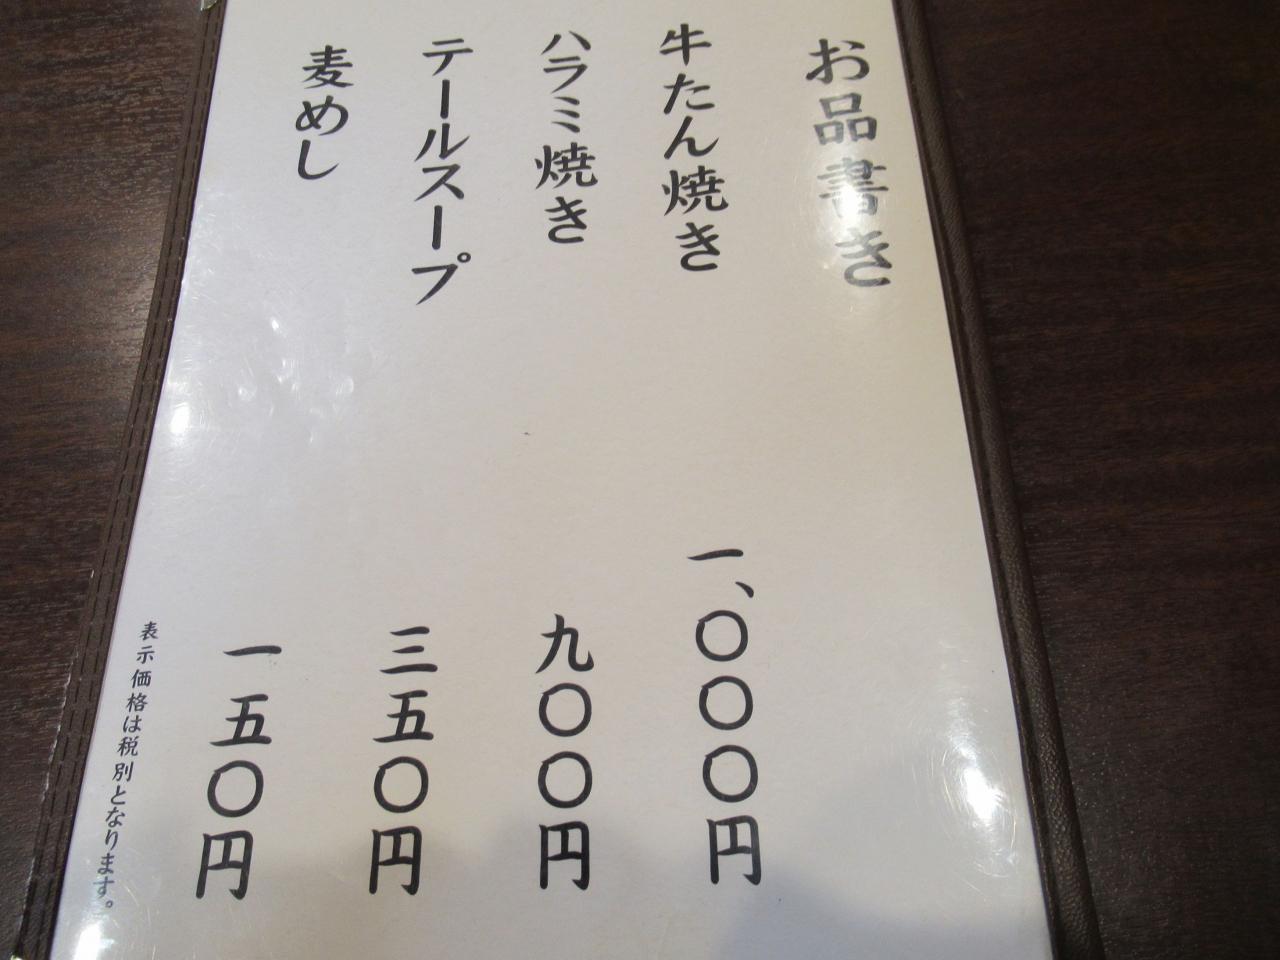 お品書き
牛たん焼き 一、〇〇〇円
ハラミ焼き 九〇〇円
テールスープ 三五〇円
麦めし 一五〇円
表示価格は税別となります。